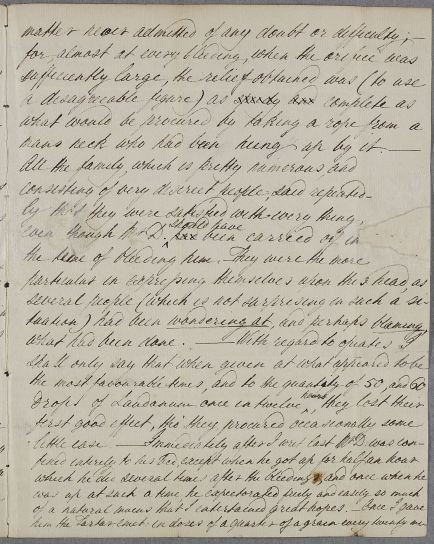 matter never admitted of any doubt or difficulty; —
for, almost at every bleeding, when the orifice was
sufficiently large, the relief obtained was (to use
a disagreeable figure) as complete as
what would be procured by taking a rope from a
mans neck who had been hung up by it. —
All the family, which is pretty numerous and
consisting of very discreet people, said repeated-
ly that they were satisfied with every thing,
even though Mr D. should have been carried off in
the time of bleeding him. They were the more
particular in expressing themselves upon this head, as
several people (which is not surprising in such a si-
tuation) had been wondering at, and perhaps blaming,
what had been done. — With regard to opiates I
shall only say that when given at what appeared to be
the most favourable times, and to the quantity of 50 and 60
drops of Laudanum once in twelve hours, they lost their
first good effect, tho' they procured occasionally some
little ease — Immediately after I wrt last Mr D was con-
fined entirely to his bed, except when he got up for half an hour
which he did several times after the bleedings, and once when he
was up at such a time, he expectorated freely and easily so much
of a natural mucus that I entertained great hopes. — Once I gave
him the Tartar emet: in doses of a quarter of a grain every twenty mi-